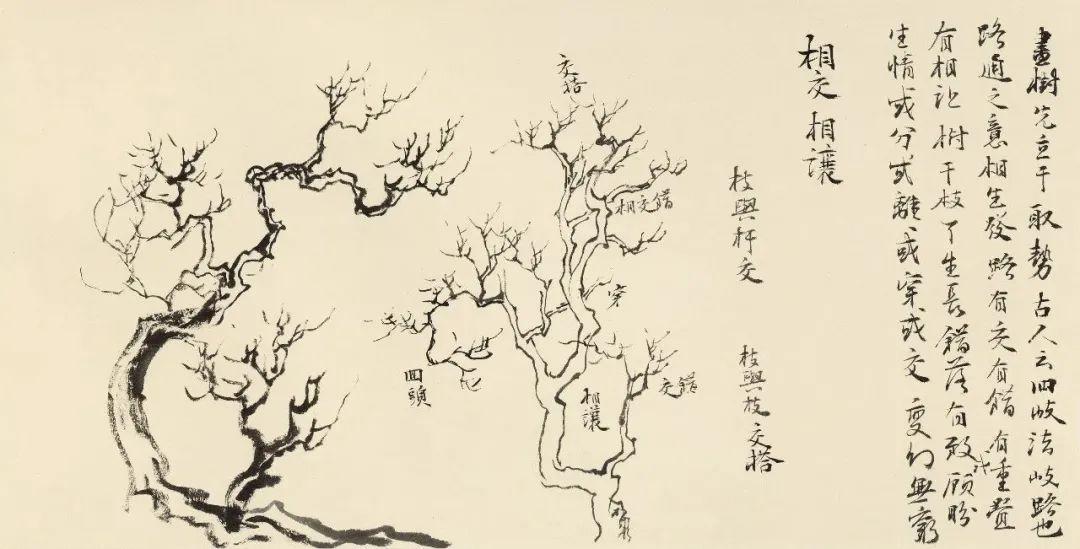 畫樹先立干取勢古人云四岐法岐路也
路通之意相生發路有交有錯有重疊
有相让樹干枝丫生長錯落有致顧盼
生情或分或離或穿或交變幻無窮
相交相讓
枝與杆交
枝與枝交搭
交搭
相交錯
穿
交錯
相讓
回頭